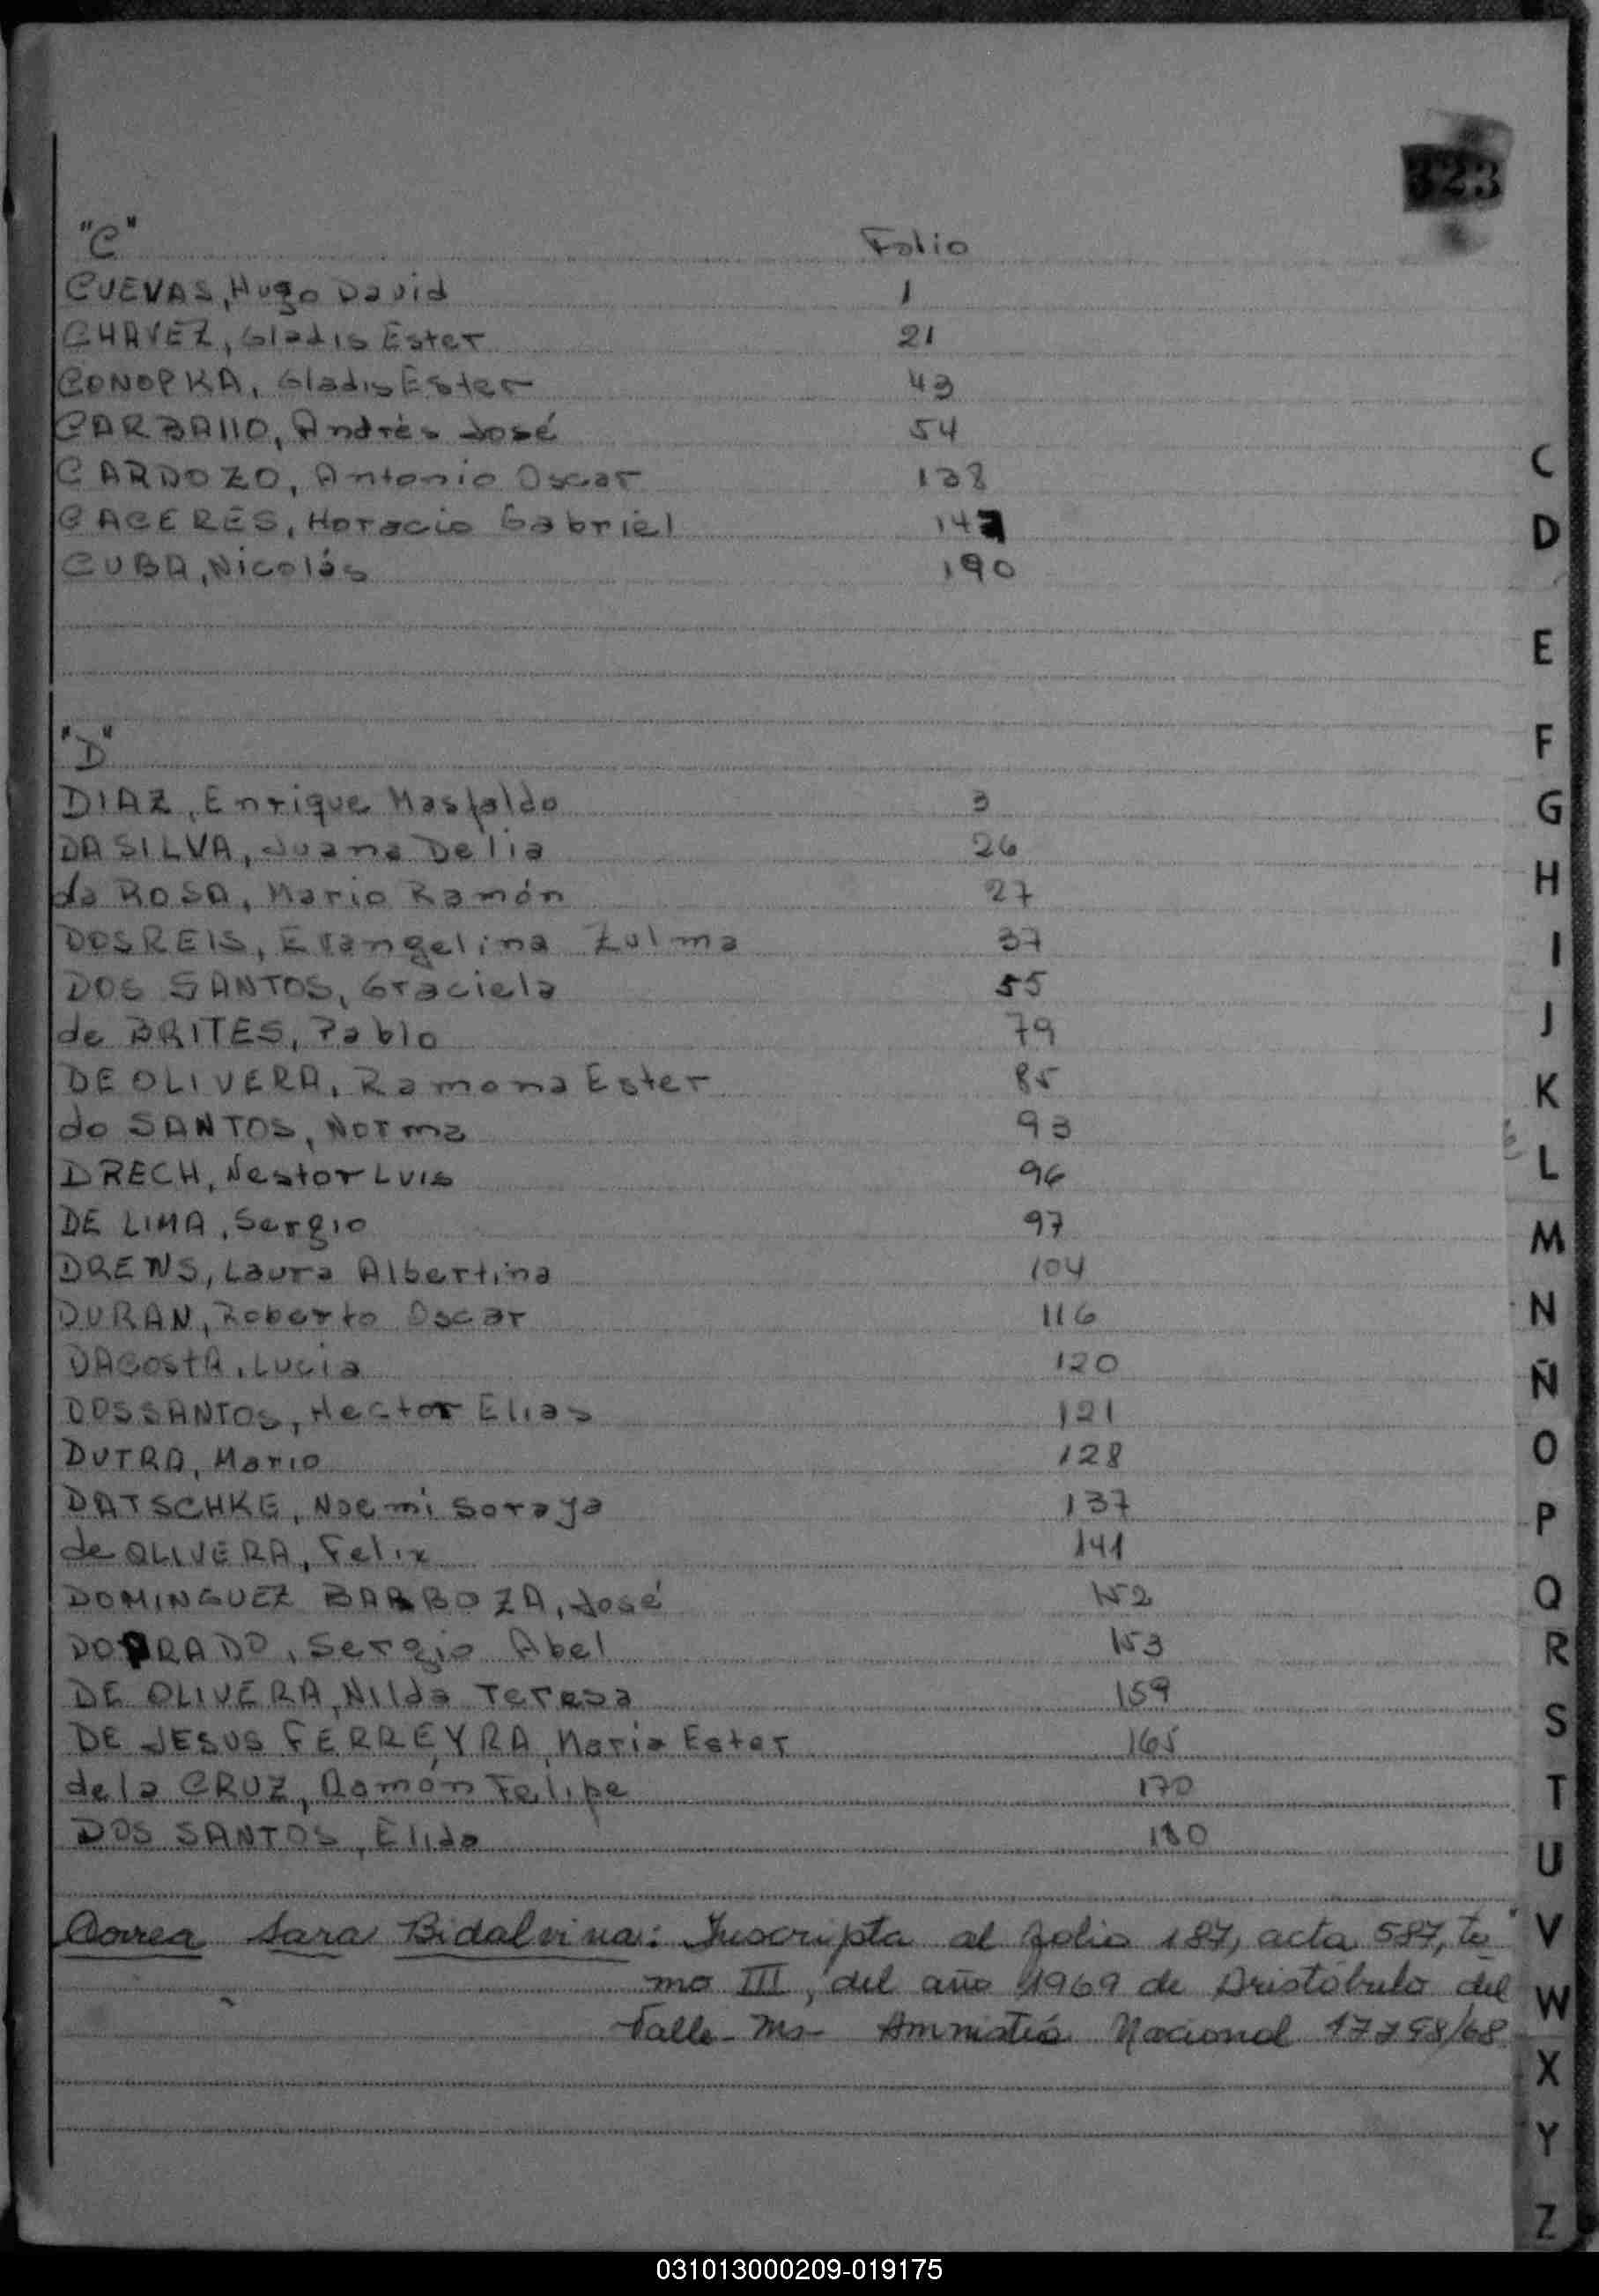 323
"C" Folio
CUEVAS, Hugo David 1
CHAVEZ, Gladis Ester 21
CONOPKA, Gladis Ester 43
CARBAllO, Andrés José 54
CARDOZO, Antonio Oscar 138
CACERES, Horacio Gabriel 147
CUBA, Nicolás 190
"D"
DIAZ, Enrique Masfaldo 3
DASILVA, Juana Delia 26
da ROSA, Mario Ramón 27
DOSREIS, Evangelina Zulma 37
DOS SANTOS, Graciela 55
de BRITES, Pablo 79
DE OLIVERA, Ramona Ester 85
do SANTOS, Norma 93
DRECH, Nestor Luis 96
DE LIMA, Sergio 97
DREWS, Laura Albertina 104
DURAN, Roberto Oscar 116
DACOSTA, Lucia 120
DOSSANTOS, Hector Elias 121
DUTRA, Mario 128
DATSCHKE, Noemi Soraya 137
de OLIVERA, Felix 141
DOMINGUEZ BARBOZA, José 152
DOPRADO, Sergio Abel 153
DE OLIVERA, Nilda Teresa 159
DE JESUS FERREYRA, Maria Ester 165
de la CRUZ, Ramón Felipe 170
DOS SANTOS, Elida 180
Correa Sara Bidalvina: Inscripta al folio 187, acta 587, to
mo III, del año 1969 de Aristóbulo del
Valle - Ms - Amnistía Nacional 17798/68.
C
D
E
F
G
H
I
J
K
L
M
N
Ñ
O
P
Q
R
S
T
U
V
W
X
Y
Z
031013000209-019175